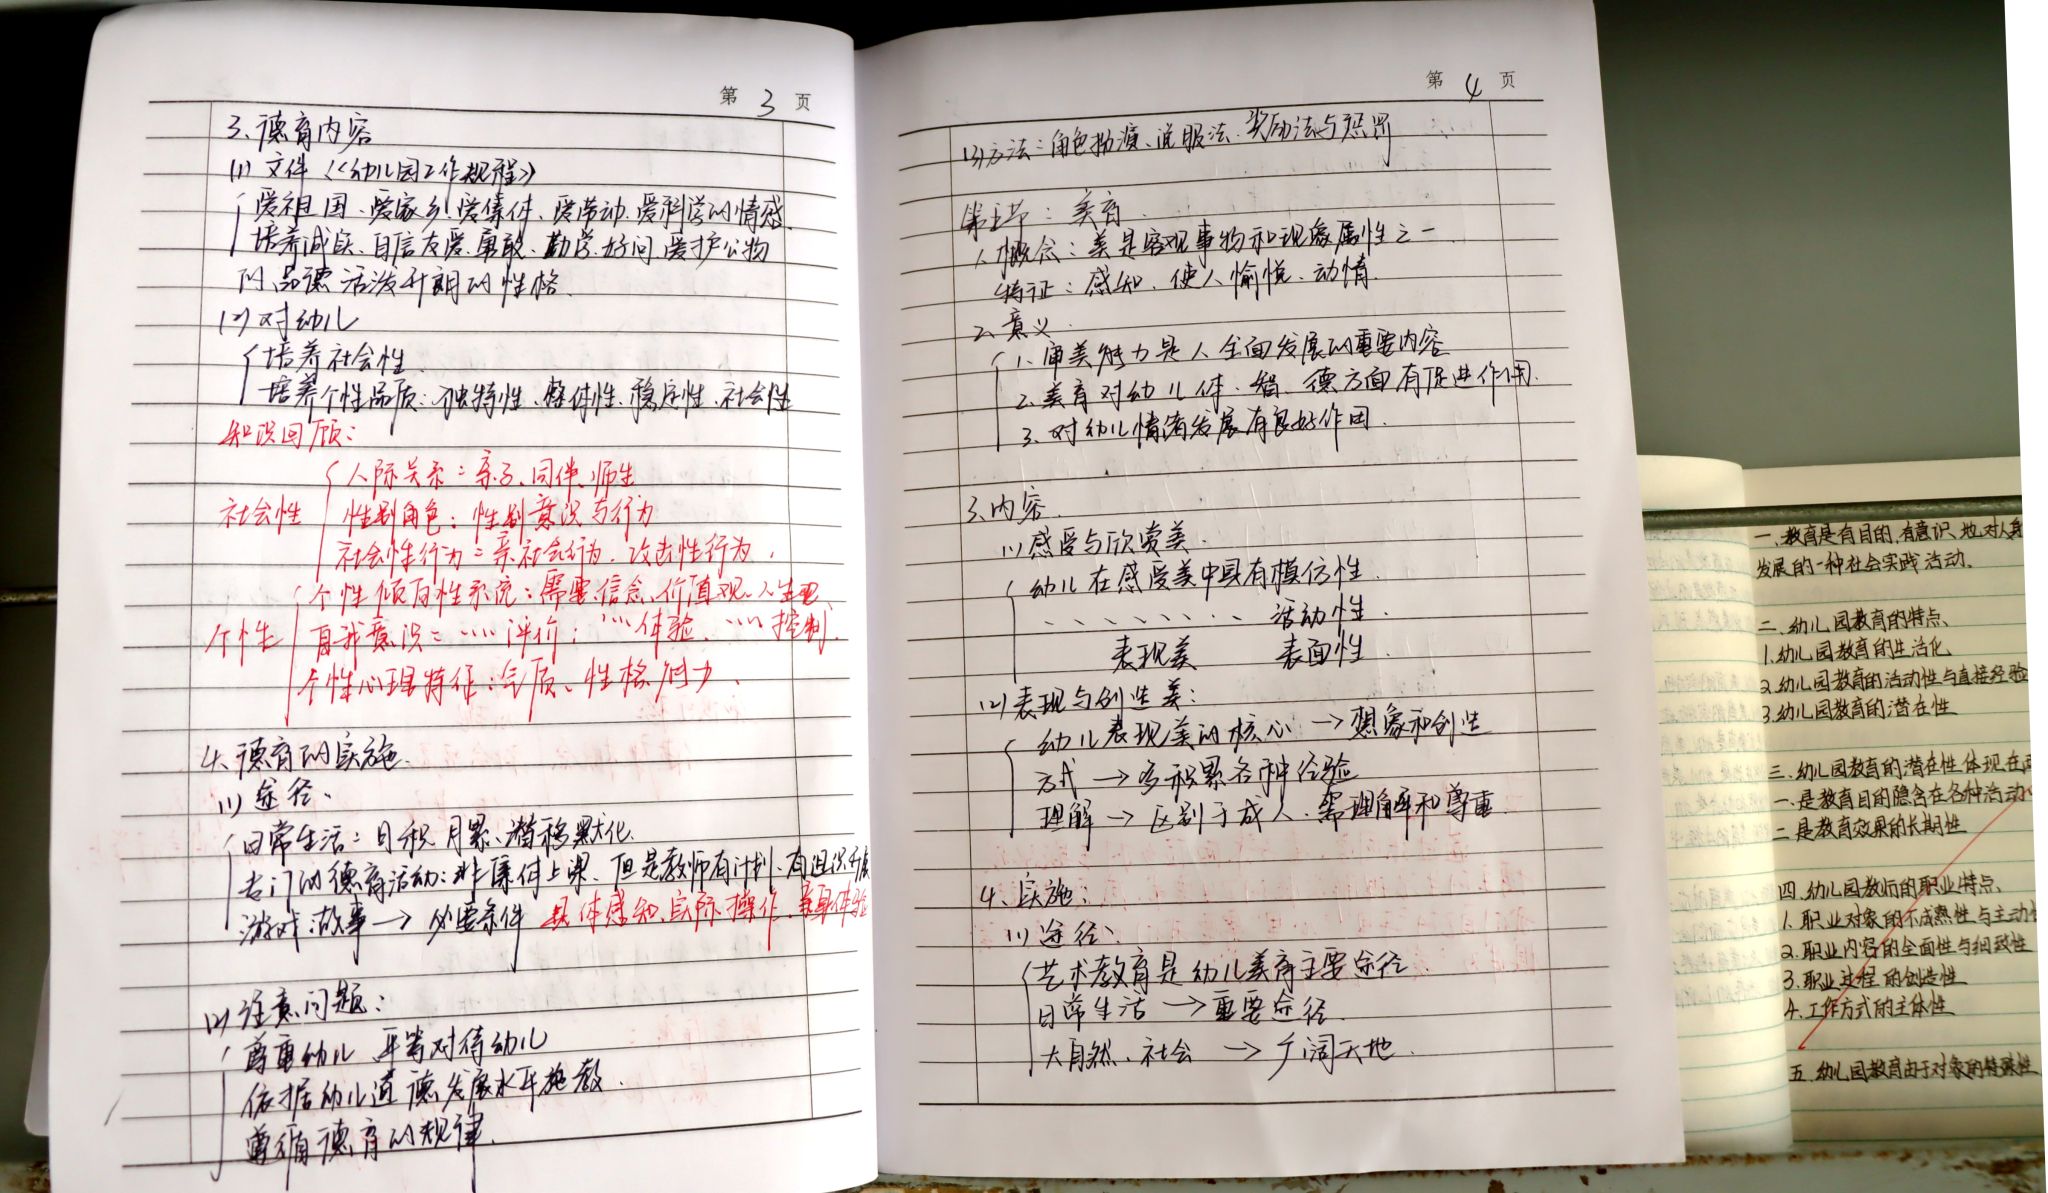 第 3 页
3、德育内容
(1) 文件《幼儿园工作规程》
爱祖国、爱家乡、爱集体、爱劳动、爱科学的情感
培养诚实、自信、友爱、勇敢、勤学、好问、爱护公物
的品德活泼开朗的性格.
(2) 对幼儿
培养社会性
培养个性品质:独特性、整体性、稳定性、社会性
知识回顾:
人际关系:亲子、同伴、师生
社会性 性别角色:性别意识与行为
社会性行为:亲社会行为、攻击性行为.
个性倾向性系统:需要、信念、价值观、人生观
个性 自我意识:……评价;……体验、……控制.
个性心理特征:气质、性格、能力.
4、德育的实施.
(1) 途径、
日常生活:日积月累、潜移默化.
专门的德育活动:非集体上课、但是教师有计划、有组织开展
游戏:故事→必要条件 具体感知、实际操作、亲身体验
(2) 注意问题:
尊重幼儿 平等对待幼儿
依据幼儿道德发展水平施教.
遵循德育的规律.
第 4 页
(3)方法:角色扮演、说服法、奖励法与惩罚
第五节:美育.
1、概念:美是客观事物和现象属性之一.
特征:感知、使人愉悦、动情.
2、意义.
1、审美能力是人全面发展的重要内容
2、美育对幼儿体、智、德方面有促进作用.
3、对幼儿情绪发展有良好作用.
3、内容.
(1) 感受与欣赏美.
幼儿在感受美中具有模仿性.
、、、、、、、、 活动性.
表现美 表面性.
(2) 表现与创造美:
幼儿表现美的核心→想象和创造
方式→多积累各种经验
理解→区别于成人、需理解和尊重.
4、实施:
(1) 途径:
艺术教育是幼儿美育主要途径.
日常生活→重要途径.
大自然、社会→广阔天地.
一、教育是有目的、有意识地对人身
发展的一种社会实践活动.
二、幼儿园教育的特点、
1.幼儿园教育的生活化
2.幼儿园教育的活动性与直接经验
3.幼儿园教育的潜在性
三、幼儿园教育的潜在性体现在
一、是教育目的隐含在各种活动
二是教育效果的长期性
四、幼儿园教师的职业特点、
1.职业对象的不成熟性与主动
2.职业内容的全面性与细致性
3.职业过程的创造性
4.工作方式的主体性
五、幼儿园教育由于对象的特殊性